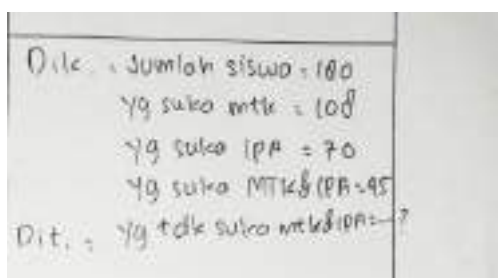 Dik : Jumlah siswa = 180
yg suka mtk = 108
yg suka IPA = 70
yg suka MTK & IPA = 45
Dit. : yg tdk suka mtk & IPA = - ?